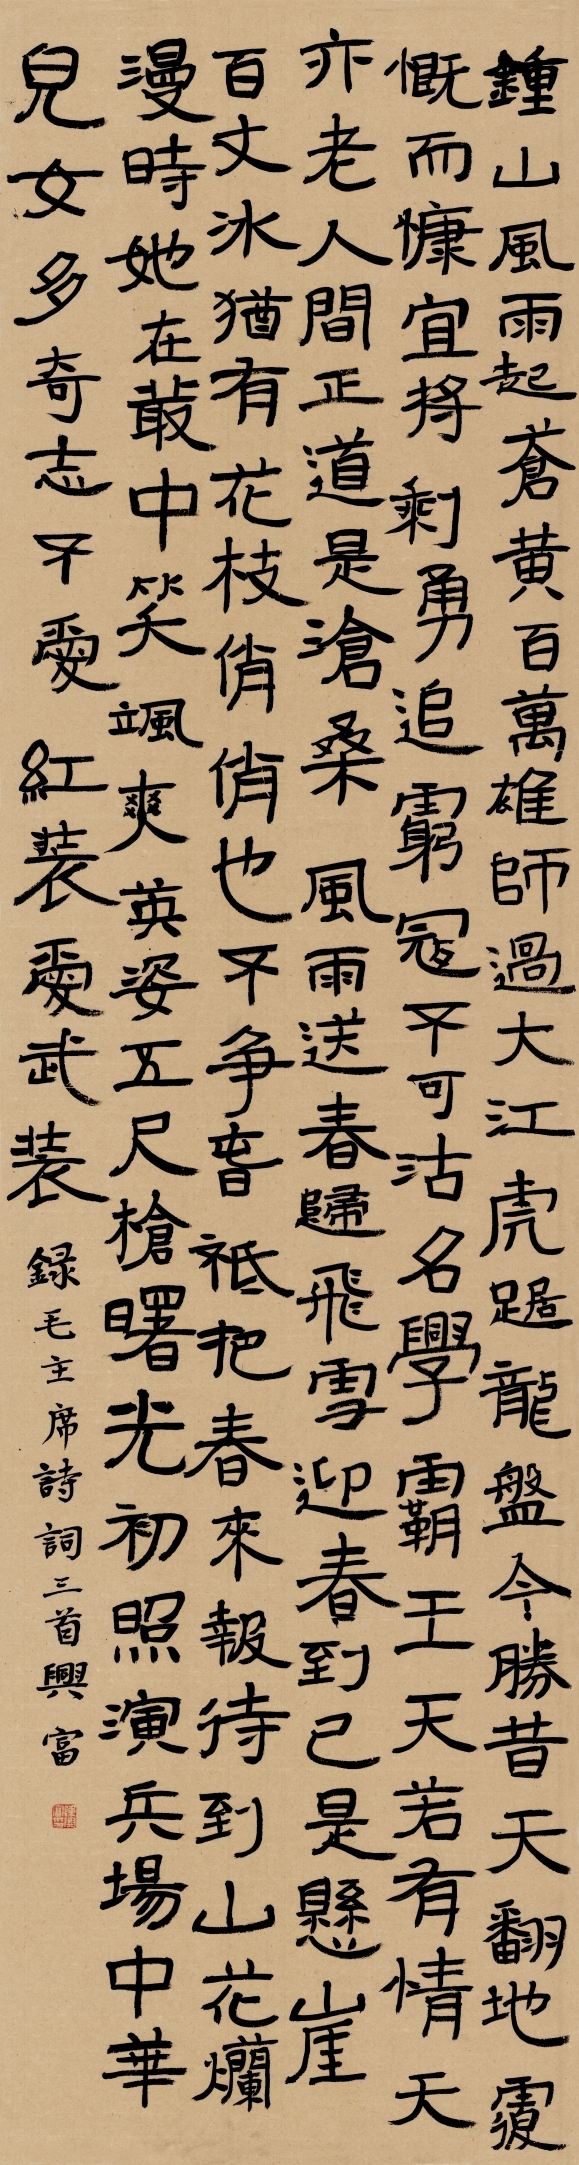 鍾山風雨起蒼黄百萬雄師過大江虎踞龍盤今勝昔天翻地覆
慨而慷宜將剩勇追窮寇不可沽名學霸王天若有情天
亦老人間正道是滄桑風雨送春歸飛雪迎春到已是懸崖
百丈冰猶有花枝俏俏也不争春祗把春來報待到山花爛
漫時她在叢中笑颯爽英姿五尺槍曙光初照演兵場中華
兒女多奇志不愛紅装愛武装
録毛主席詩詞三首興富